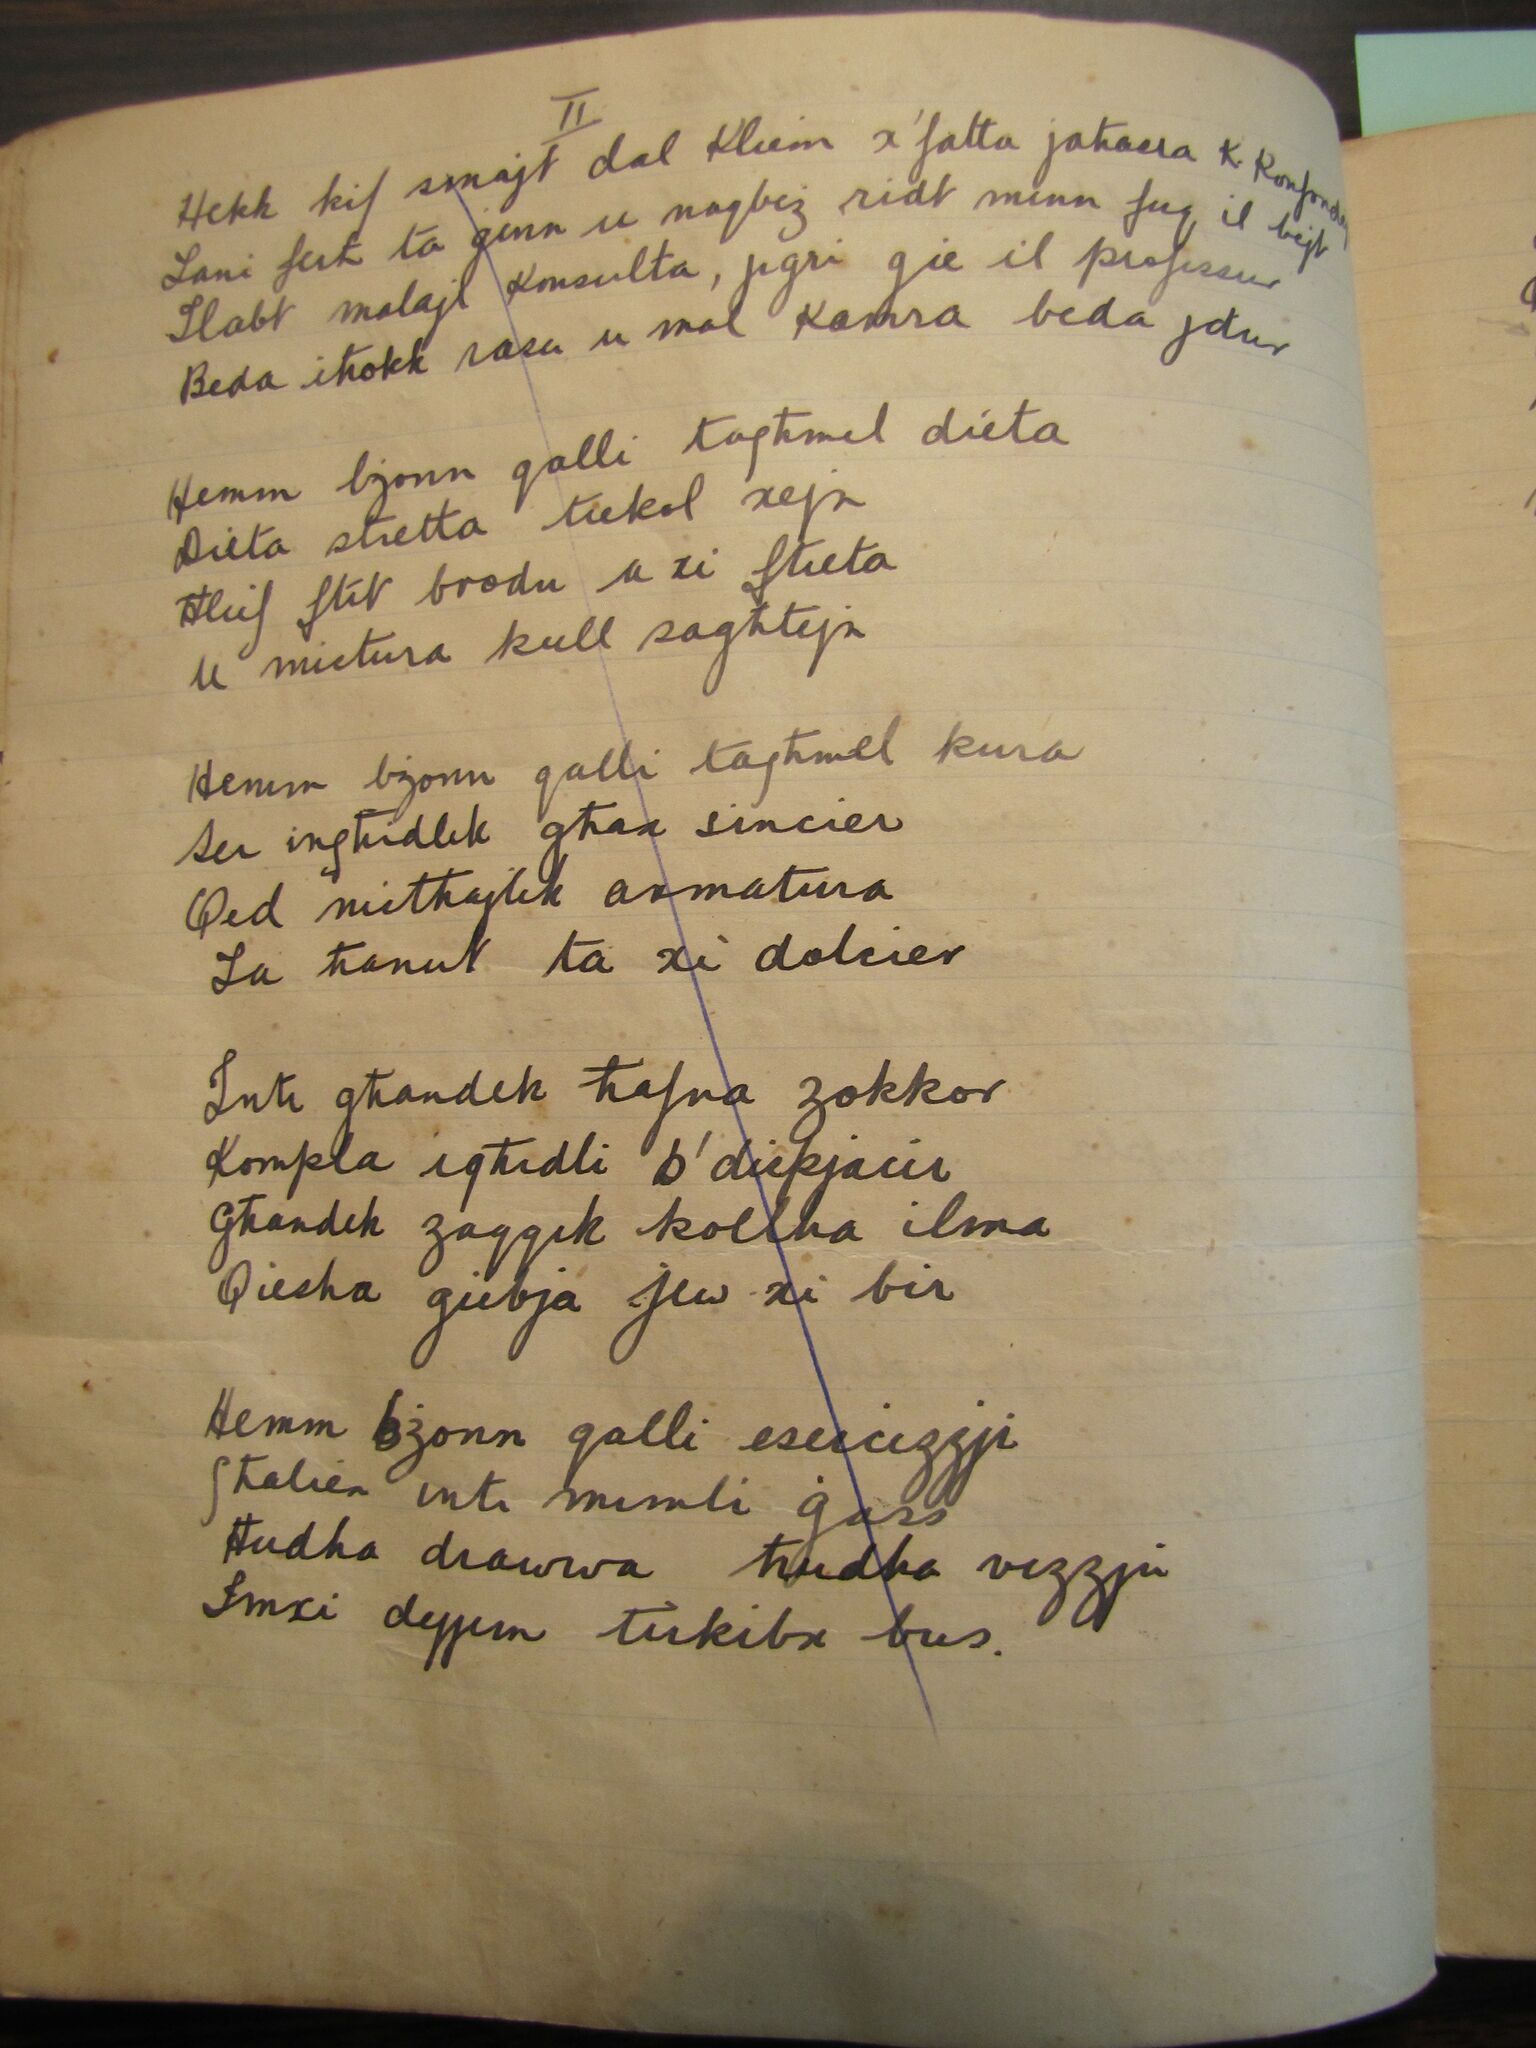 II
Hekk kif smajt dal Kliem x'fatta jaħasra K. Konfondejt
Lani fert ta ġenn u naqbeż ridt minn fuq il bejt
Tlabt malajl Konsulta, jigri gie il professur
Beda iħokk rasu u mal Kamra beda jdur
Hemm bżonn qalli tagħmel dieta
Dieta stretta tiekol xejn
Ħlief ftit brodu u xi ftieta
U mictura kull sagħtejn
Hemm bżonn qalli tagħmel kura
Ser ingħidlek għax sincier
Qed nicthajlek armatura
Ta ħanut ta xi dolcier
Inti għandek ħafna zokkor
Kompla igħidli b'diepjacir
Għandek zaqqek kollha ilma
Qiesha giebja jew xi bir
Hemm bżonn qalli esercizzji
Għaliex inti mimli ġass
Ħudha drawwa ħudha vizzju
Imxi dejjem tirkibx bus.